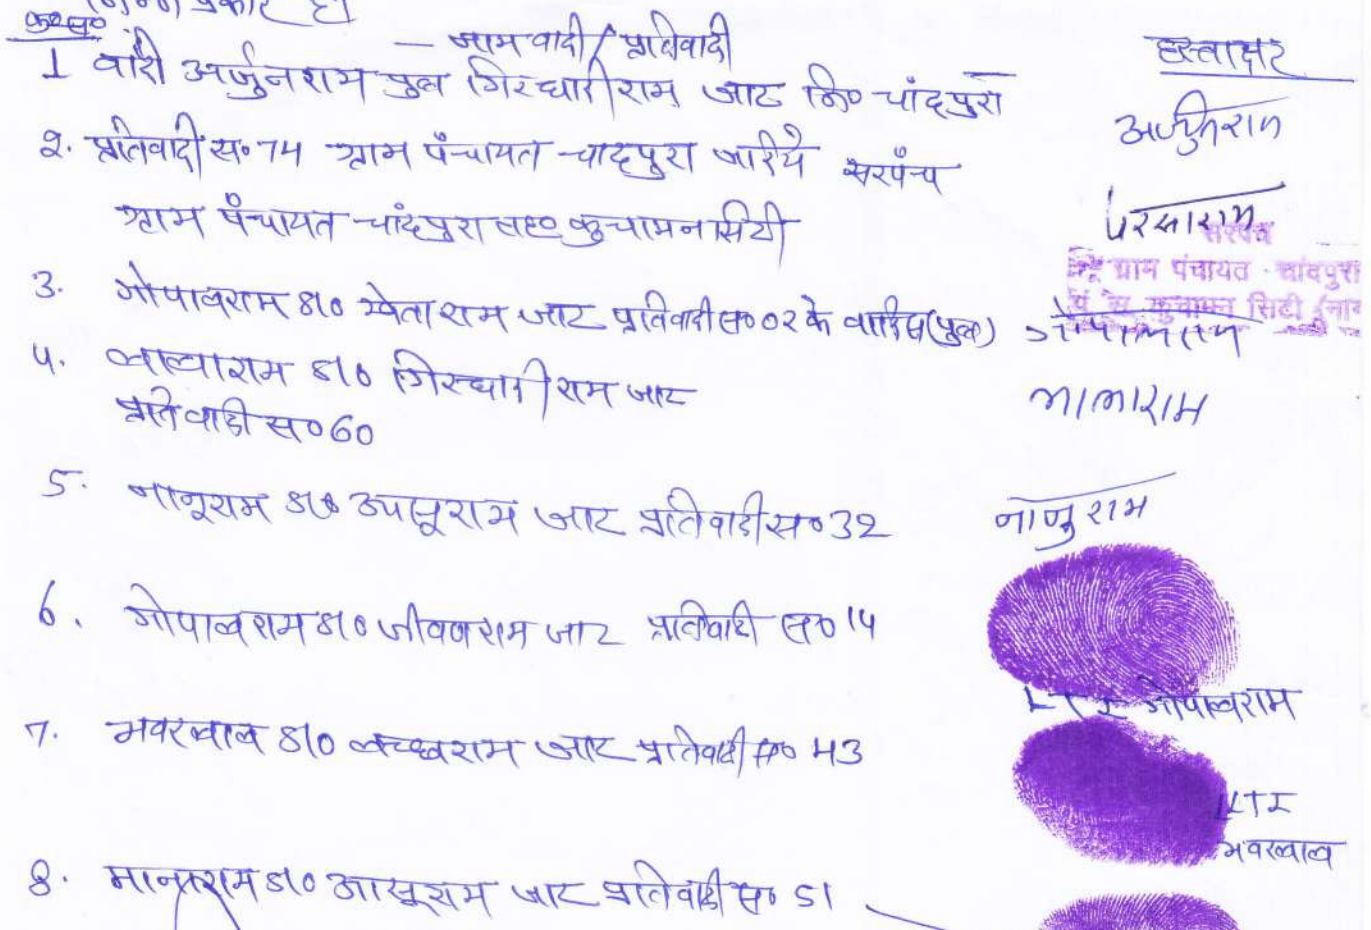 प्रकार है।
क्र०स० — नाम वादी / प्रतिवादी हस्ताक्षर
1 वादी अर्जुनराम पुत्र गिरधारीराम जाट नि० चांदपुरा अर्जुनराम
2. प्रतिवादी स० 74 ग्राम पंचायत चांदपुरा जरिये सरपंच
ग्राम पंचायत चांदपुरा तह० कुचामनसिटी परसाराम
सरपंच
ग्राम पंचायत चांदपुरा
पं. स. कुचामन सिटी (नाग
3. गोपालराम S/o खेताराम जाट प्रतिवादी स० 02 के वारिस (पुत्र) गोपालराम
4. लालाराम S/o गिरधारीराम जाट लालाराम
प्रतिवादी स० 60
5. नानूराम S/o आसूराम जाट प्रतिवादी स० 32 नानुराम
6. गोपालराम S/o जीवणराम जाट प्रतिवादी स० 14
LTI गोपालराम
7. भवरलाल S/o लच्छाराम जाट प्रतिवादी स० 43
LTI
भवरलाल
8. S/o आसूराम जाट प्रतिवादी स० 51